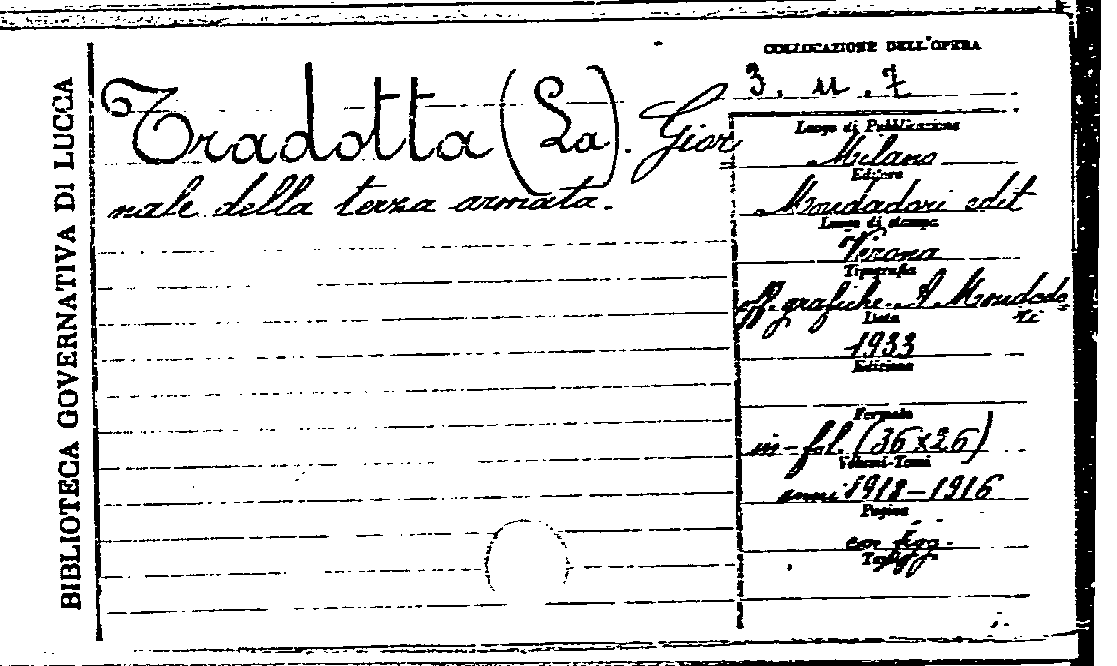 BIBLIOTECA GOVERNATIVA DI LUCCA
Tradotta (La). Gior
nale della terza armata.
COLLOCAZIONE DELL'OPERA
3. M. 7
Luogo di Pubblicazione
Milano
Editore
Mondadori edit
Luogo di stampa
Verona
Tipografia
off. grafiche A Mondado
ri
Data
1933
Edizione
Formato
in-fol. (36x26)
Volumi-Tomi
anni 1918-1916
Pagine
con figg.